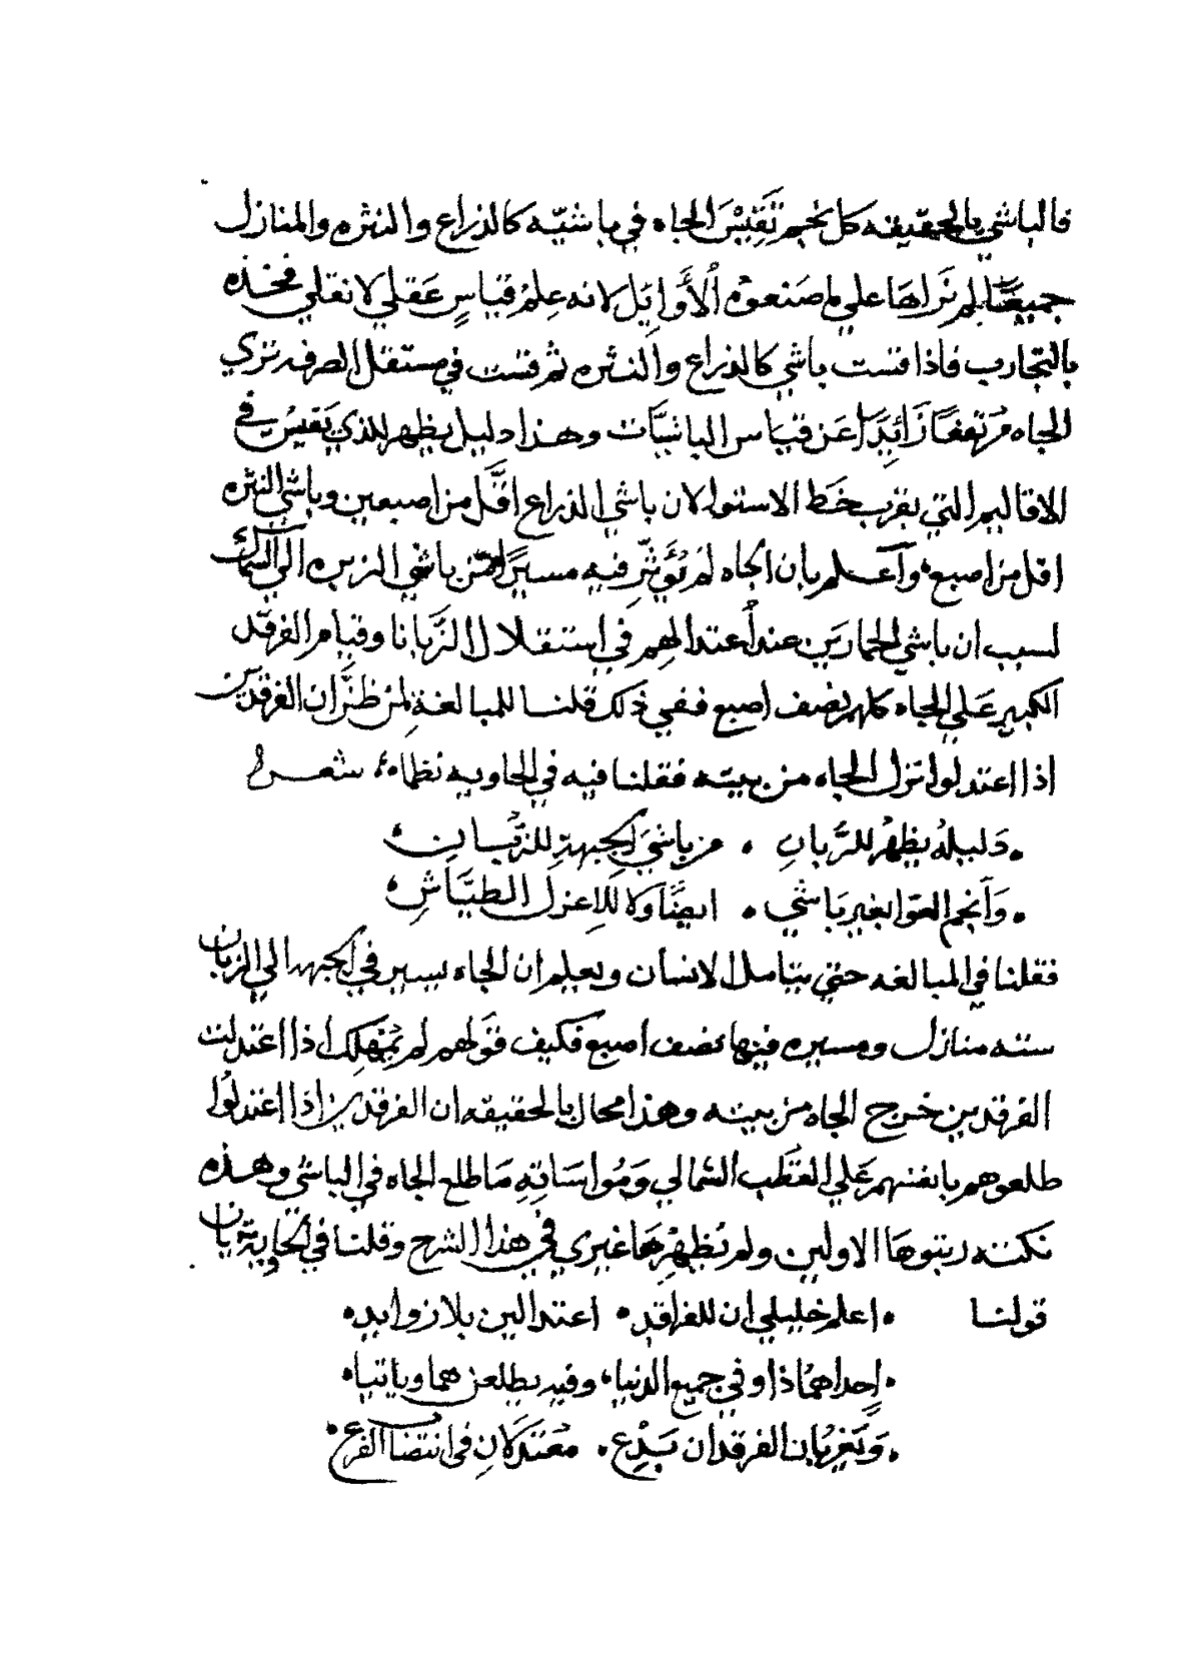 فالباشي بالحقيقه كل نجم تَقِيْسَ الجاه في باشيّه كالذراع والنثره والمنازل
جميعًا لم نَراها علي ما صَنعوه الأَوايَل لانه عِلمُ قياسٍ عَقلي لا نقلي فخذه
بالتجارب فاذا قست باشي كالذراع والنثره ثم قست في مستقل الصرفه تري
الجاه مُرتفعًا زَائِدًا عَن قيَاس البانيَّات وهذا دليل يظهر للذي يَقيسُ في
الاقاليم التي بقرب خَط الاستوا لان باشي الذراع اقَل من اصبعين وباشي النثره
اقل من اصبع وآعلم بان الجاه لم تُؤَثّر فيه مسيرًا من باشي الزبره الي السماك
لسبب ان باشي الحمارَين عند اعتدالهم في استقلال الزُبانا وقيام الفرقد
الكبير عَلي الجاه كلهم نصف اصبع ففي ذلك قلنا للمبالغةِ لمن ظنَّ ان الفرقدين
اذا اعتدلوا نزل الجاه من بيته فقلنا فيه في الحاويه نظما شعر
دَليله يظهرُ للرُّبانِ • من باشيَ الجبهةِ للزُبانِ •
• وَآنجم العَوّا بغير بَاشي • ايضًا ولا للاعزل الطيَّاشِ
فقلنا في المبالغه حتي يتامل الانسان ويعلم ان الجاه يسير في الجبهه الي الزبان
سته منازل ومسيره فيها نصف اصبع فكيف قولهم لم اذا اعتدلت
الفرقدين خرج الجاه من بيته وهذا محال بالحقيقه ان الفرقدين اذا اعتدلُوا
طلعوهم بانفسهم عَلي القطب الشمالي وَمُواسَاتِهِ مَا طلع الجاه في الباشي وهذه
نكته ربتوها الاولين ولم يُظهرْهَا غيري في هذا الشرح وقلنا في الحاوية
قولنا • اعلم خليلي ان للفراقد • اعتدالين بلا زوايد •
• اِحداهمُا ذا وفي جميع الدنيا • وفيه يطلعن هما وياتيا •
• وَيَغرُبان الفرقدان بَدْع • معتدلانِ في انتضا الفرع •